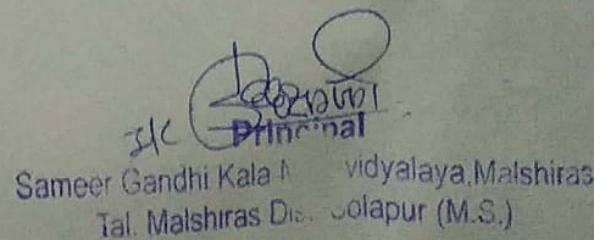 I/C
Principal
Sameer Gandhi Kala M vidyalaya,Malshiras
Tal. Malshiras Dis. Solapur (M.S.)